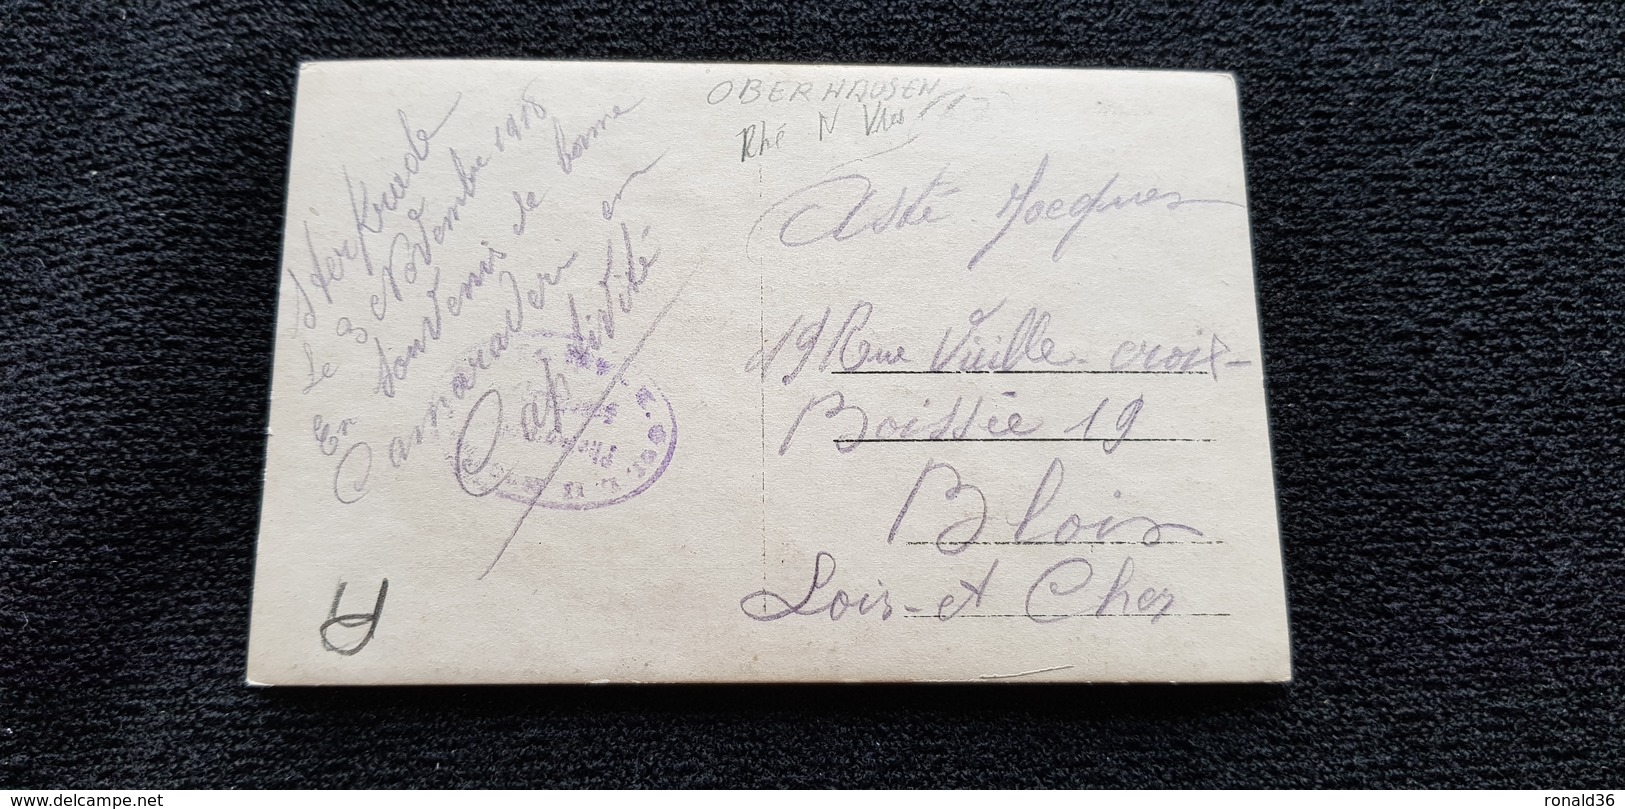 OBERHAUSEN
Rhé N
Sterkrade
Le 3 Novembre 1918
En Souvenir de bonne
Camaraderi en
Captivité
Asté Jacques
19 Rue Vieille-croix-
Boissée 19
Blois
Loir-et Cher
P
delcampe.net
ronald36